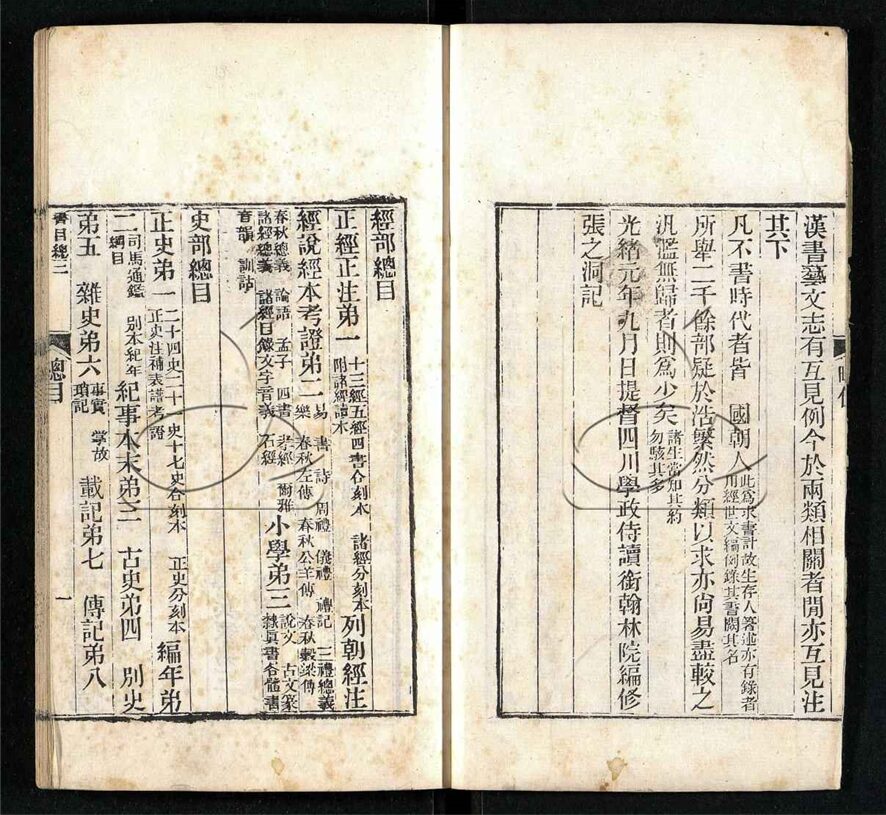 漢書藝文志有互見例今於兩類相關者閒亦互見注
其下
凡不書時代者皆 國朝人此爲求書計故生存人箸述亦有錄者
用經世文編例錄其書闕其名
所舉二千餘部疑於浩繁然分類以求亦尙易盡較之
汎濫無歸者則爲少矣諸生當知其約
勿駭其多
光緒元年九月日提督四川學政侍讀銜翰林院編修
張之洞記
經部總目
正經正注弟一 十三經五經四書合刻本 諸經分刻本
附諸經讀本
列朝經注
經說經本考證弟二 易 書 詩 周禮 儀禮 禮記 三禮總義
樂 春秋左傳 春秋公羊傳 春秋穀梁傳
春秋總義 論語 孟子 四書 孝經 爾雅
諸經總義 諸經目錄文字音義 石經
小學弟三 說文 古文篆
隸眞書各體書
音韻 訓詁
史部總目
正史弟一 二十四史二十一史十七史合刻本 正史分刻本
正史注補表譜考證
編年弟
二 司馬通鑑 別本紀年
綱目
紀事本末弟三 古史弟四 別史
弟五 雜史弟六 事實 掌故
瑣記
載記弟七 傳記弟八
書目總二
總目
一